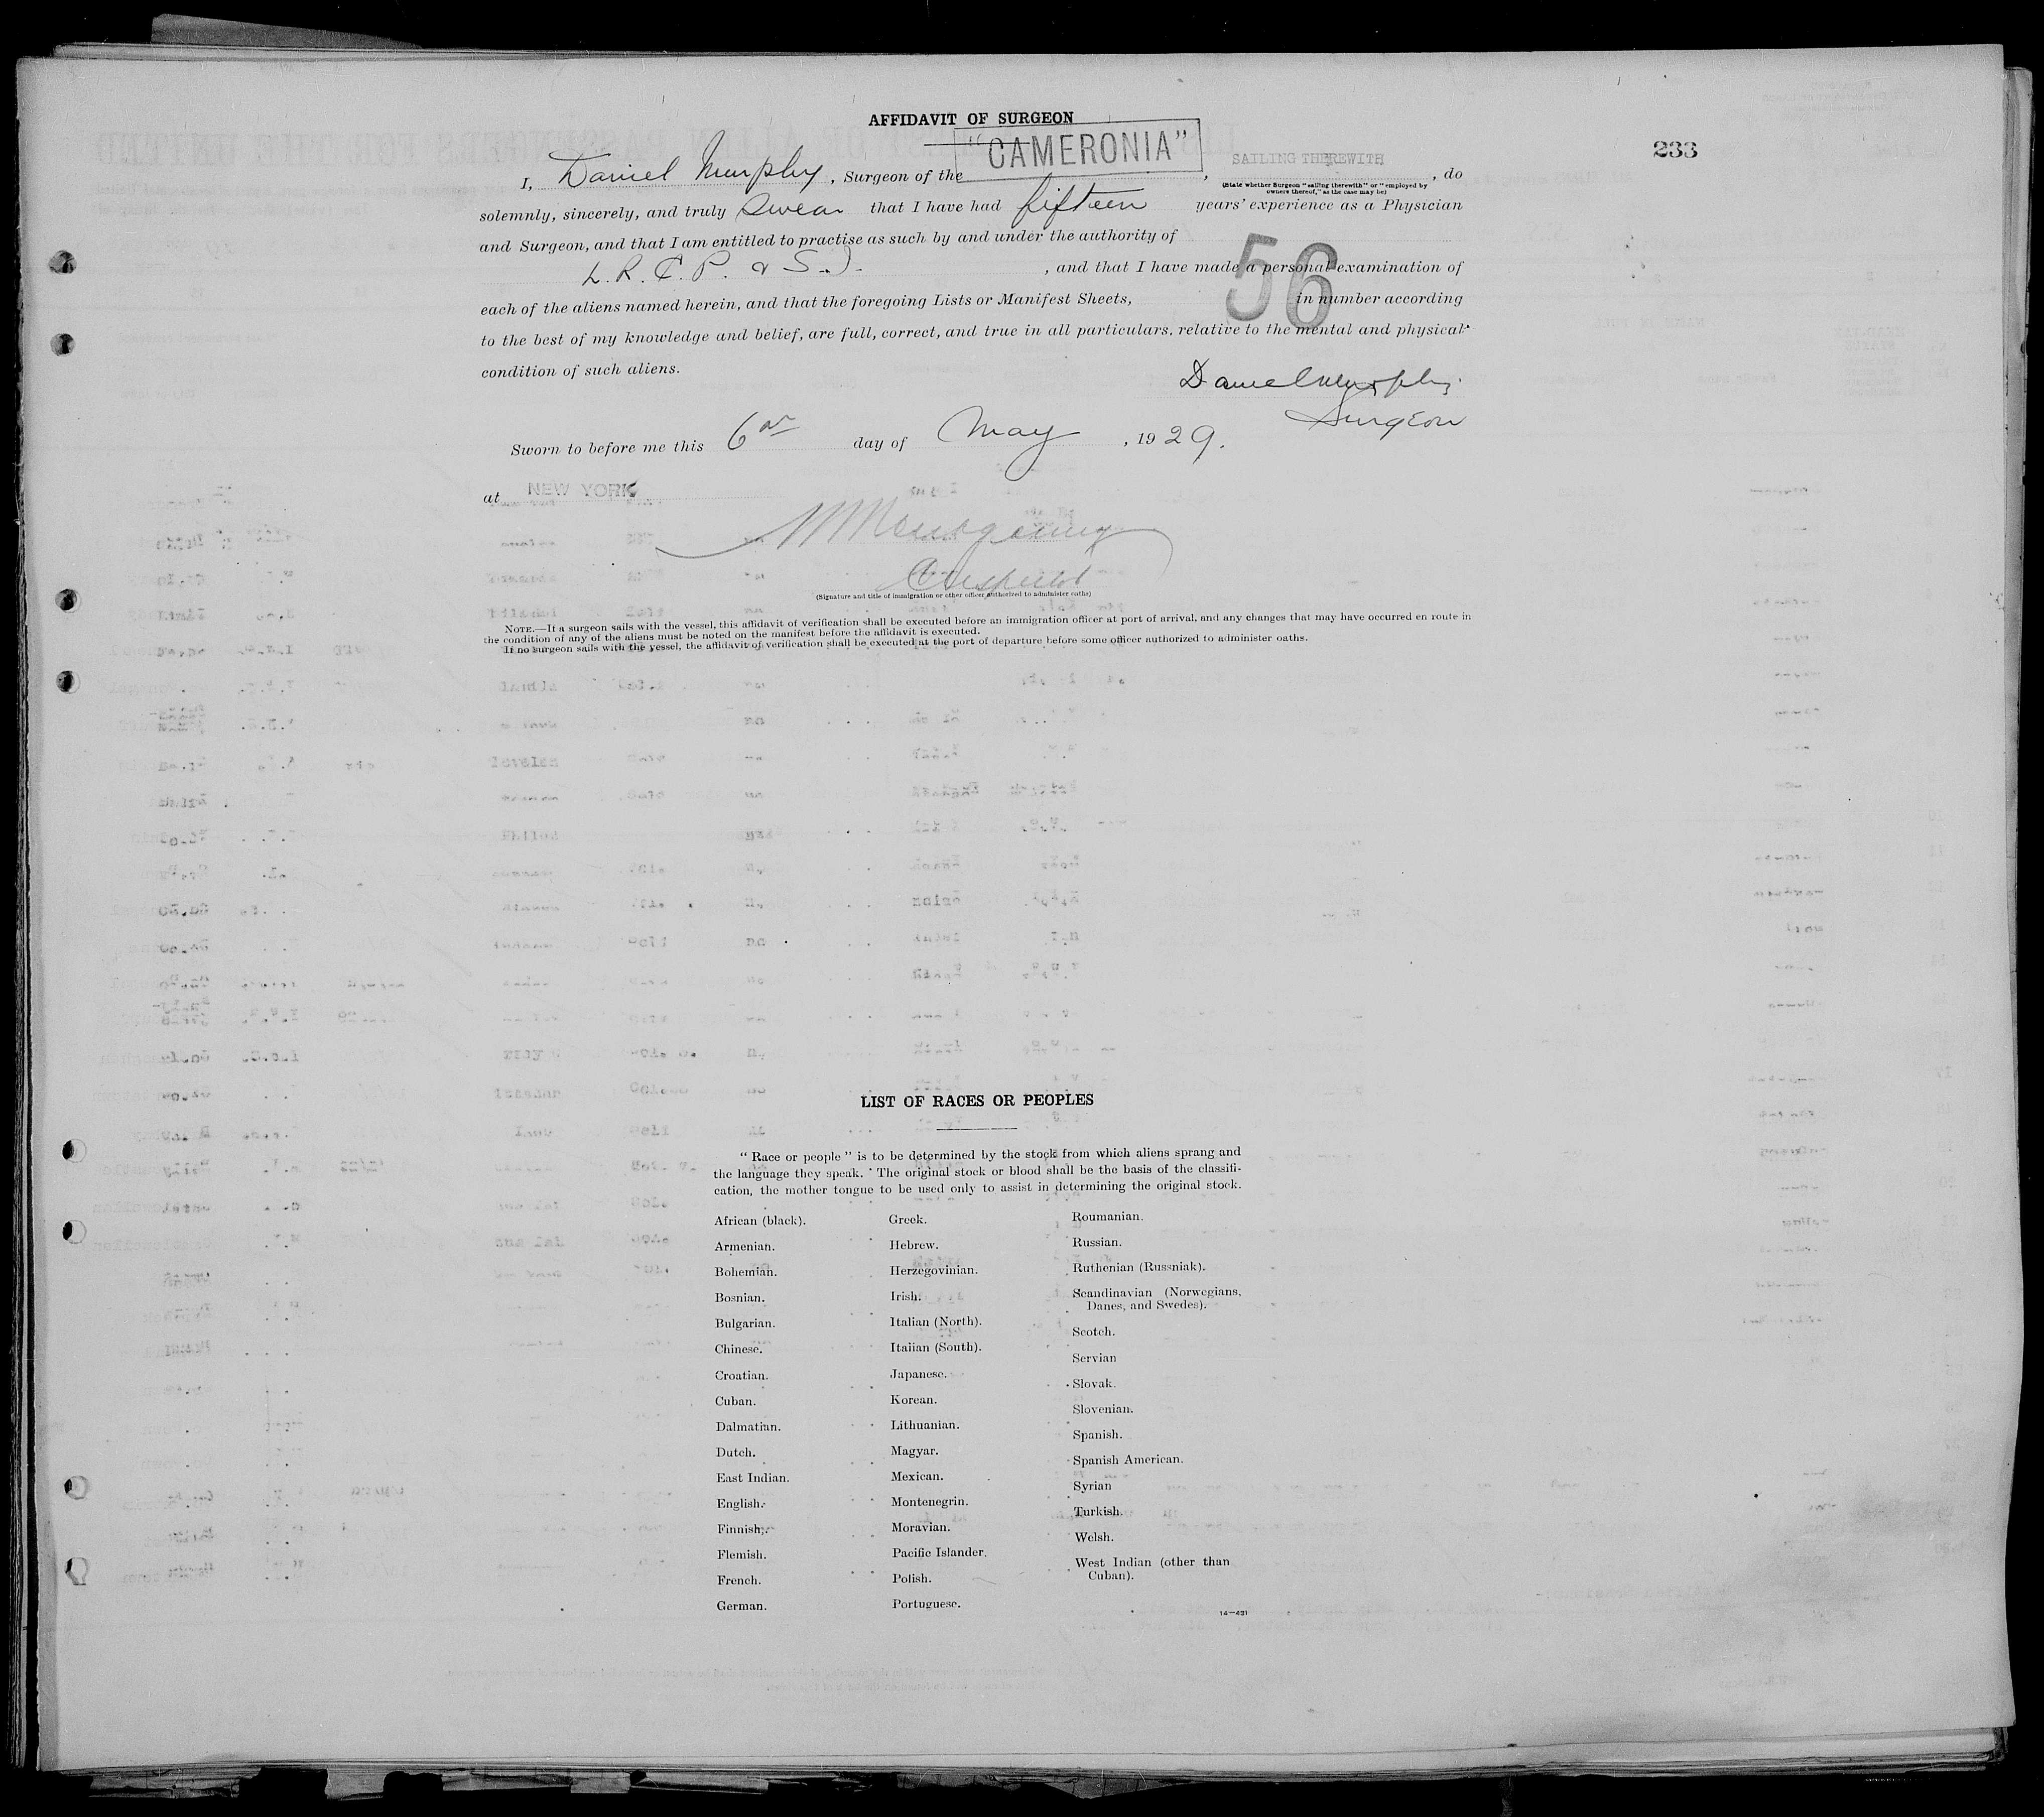 AFFIDAVIT OF SURGEON
"CAMERONIA"
233
SAILING THEREWITH
I, Daniel Murphy, Surgeon of the , , do
(State whether Surgeon "sailing therewith" or "employed by
owners thereof," as the case may be)
solemnly, sincerely, and truly swear that I have had fifteen years' experience as a Physician
and Surgeon, and that I am entitled to practise as such by and under the authority of
L. R. C. P. & S. I. , and that I have made a personal examination of
56
each of the aliens named herein, and that the foregoing Lists or Manifest Sheets, in number according
to the best of my knowledge and belief, are full, correct, and true in all particulars, relative to the mental and physical
condition of such aliens.
Daniel Murphy
Surgeon
Sworn to before me this 6th day of May , 1929.
at NEW YORK
Montgomery
Inspector
(Signature and title of immigration or other officer authorized to administer oaths)
NOTE.—If a surgeon sails with the vessel, this affidavit of verification shall be executed before an immigration officer at port of arrival, and any changes that may have occurred en route in
the condition of any of the aliens must be noted on the manifest before the affidavit is executed.
If no surgeon sails with the vessel, the affidavit of verification shall be executed at the port of departure before some officer authorized to administer oaths.
LIST OF RACES OR PEOPLES
"Race or people" is to be determined by the stock from which aliens sprang and
the language they speak. The original stock or blood shall be the basis of the classifi-
cation, the mother tongue to be used only to assist in determining the original stock.
African (black).
Armenian.
Bohemian.
Bosnian.
Bulgarian.
Chinese.
Croatian.
Cuban.
Dalmatian.
Dutch.
East Indian.
English.
Finnish.
Flemish.
French.
German.
Greek.
Hebrew.
Herzegovinian.
Irish.
Italian (North).
Italian (South).
Japanese.
Korean.
Lithuanian.
Magyar.
Mexican.
Montenegrin.
Moravian.
Pacific Islander.
Polish.
Portuguese.
Roumanian.
Russian.
Ruthenian (Russniak).
Scandinavian (Norwegians,
Danes, and Swedes).
Scotch.
Servian
Slovak.
Slovenian.
Spanish.
Spanish American.
Syrian
Turkish.
Welsh.
West Indian (other than
Cuban).
14—431